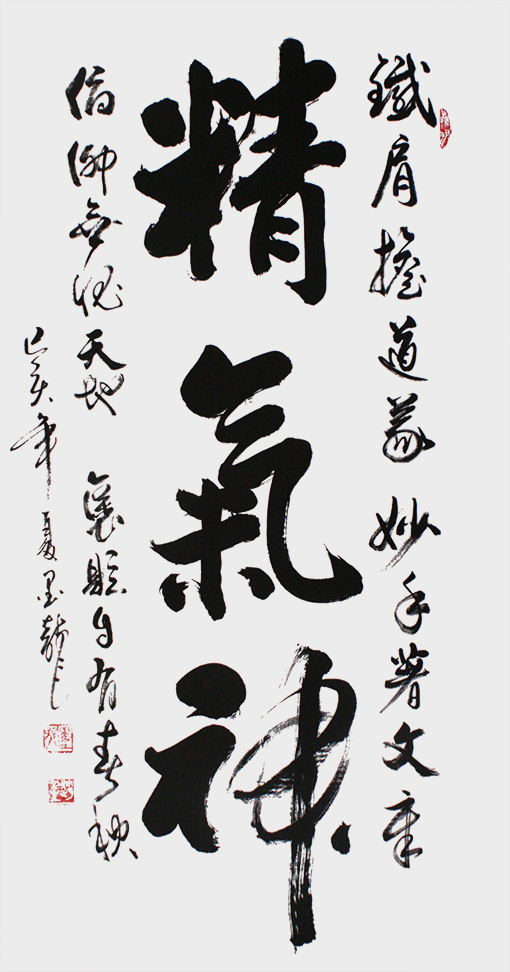 鐵肩擔道義 妙手著文章
精氣神
俯仰無愧天地 褒貶自有春秋
己亥年夏墨